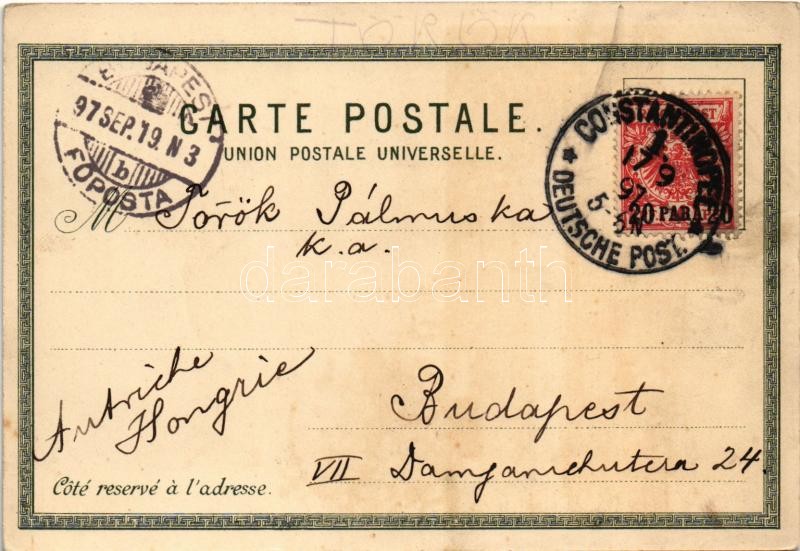 TÖRÖK
BUDAPEST
97 SEP. 19. N 3
b
FŐPOSTA
CARTE POSTALE.
UNION POSTALE UNIVERSELLE.
CONSTANTINOPEL
1
17 9
97
5-6N
* DEUTSCHE POST. *
20 PARA 20
M Török Pálmuska
k.a.
darabanth
Autriche
Hongrie
Budapest
VII Damjanichutcza 24.
Côté reservé à l'adresse.